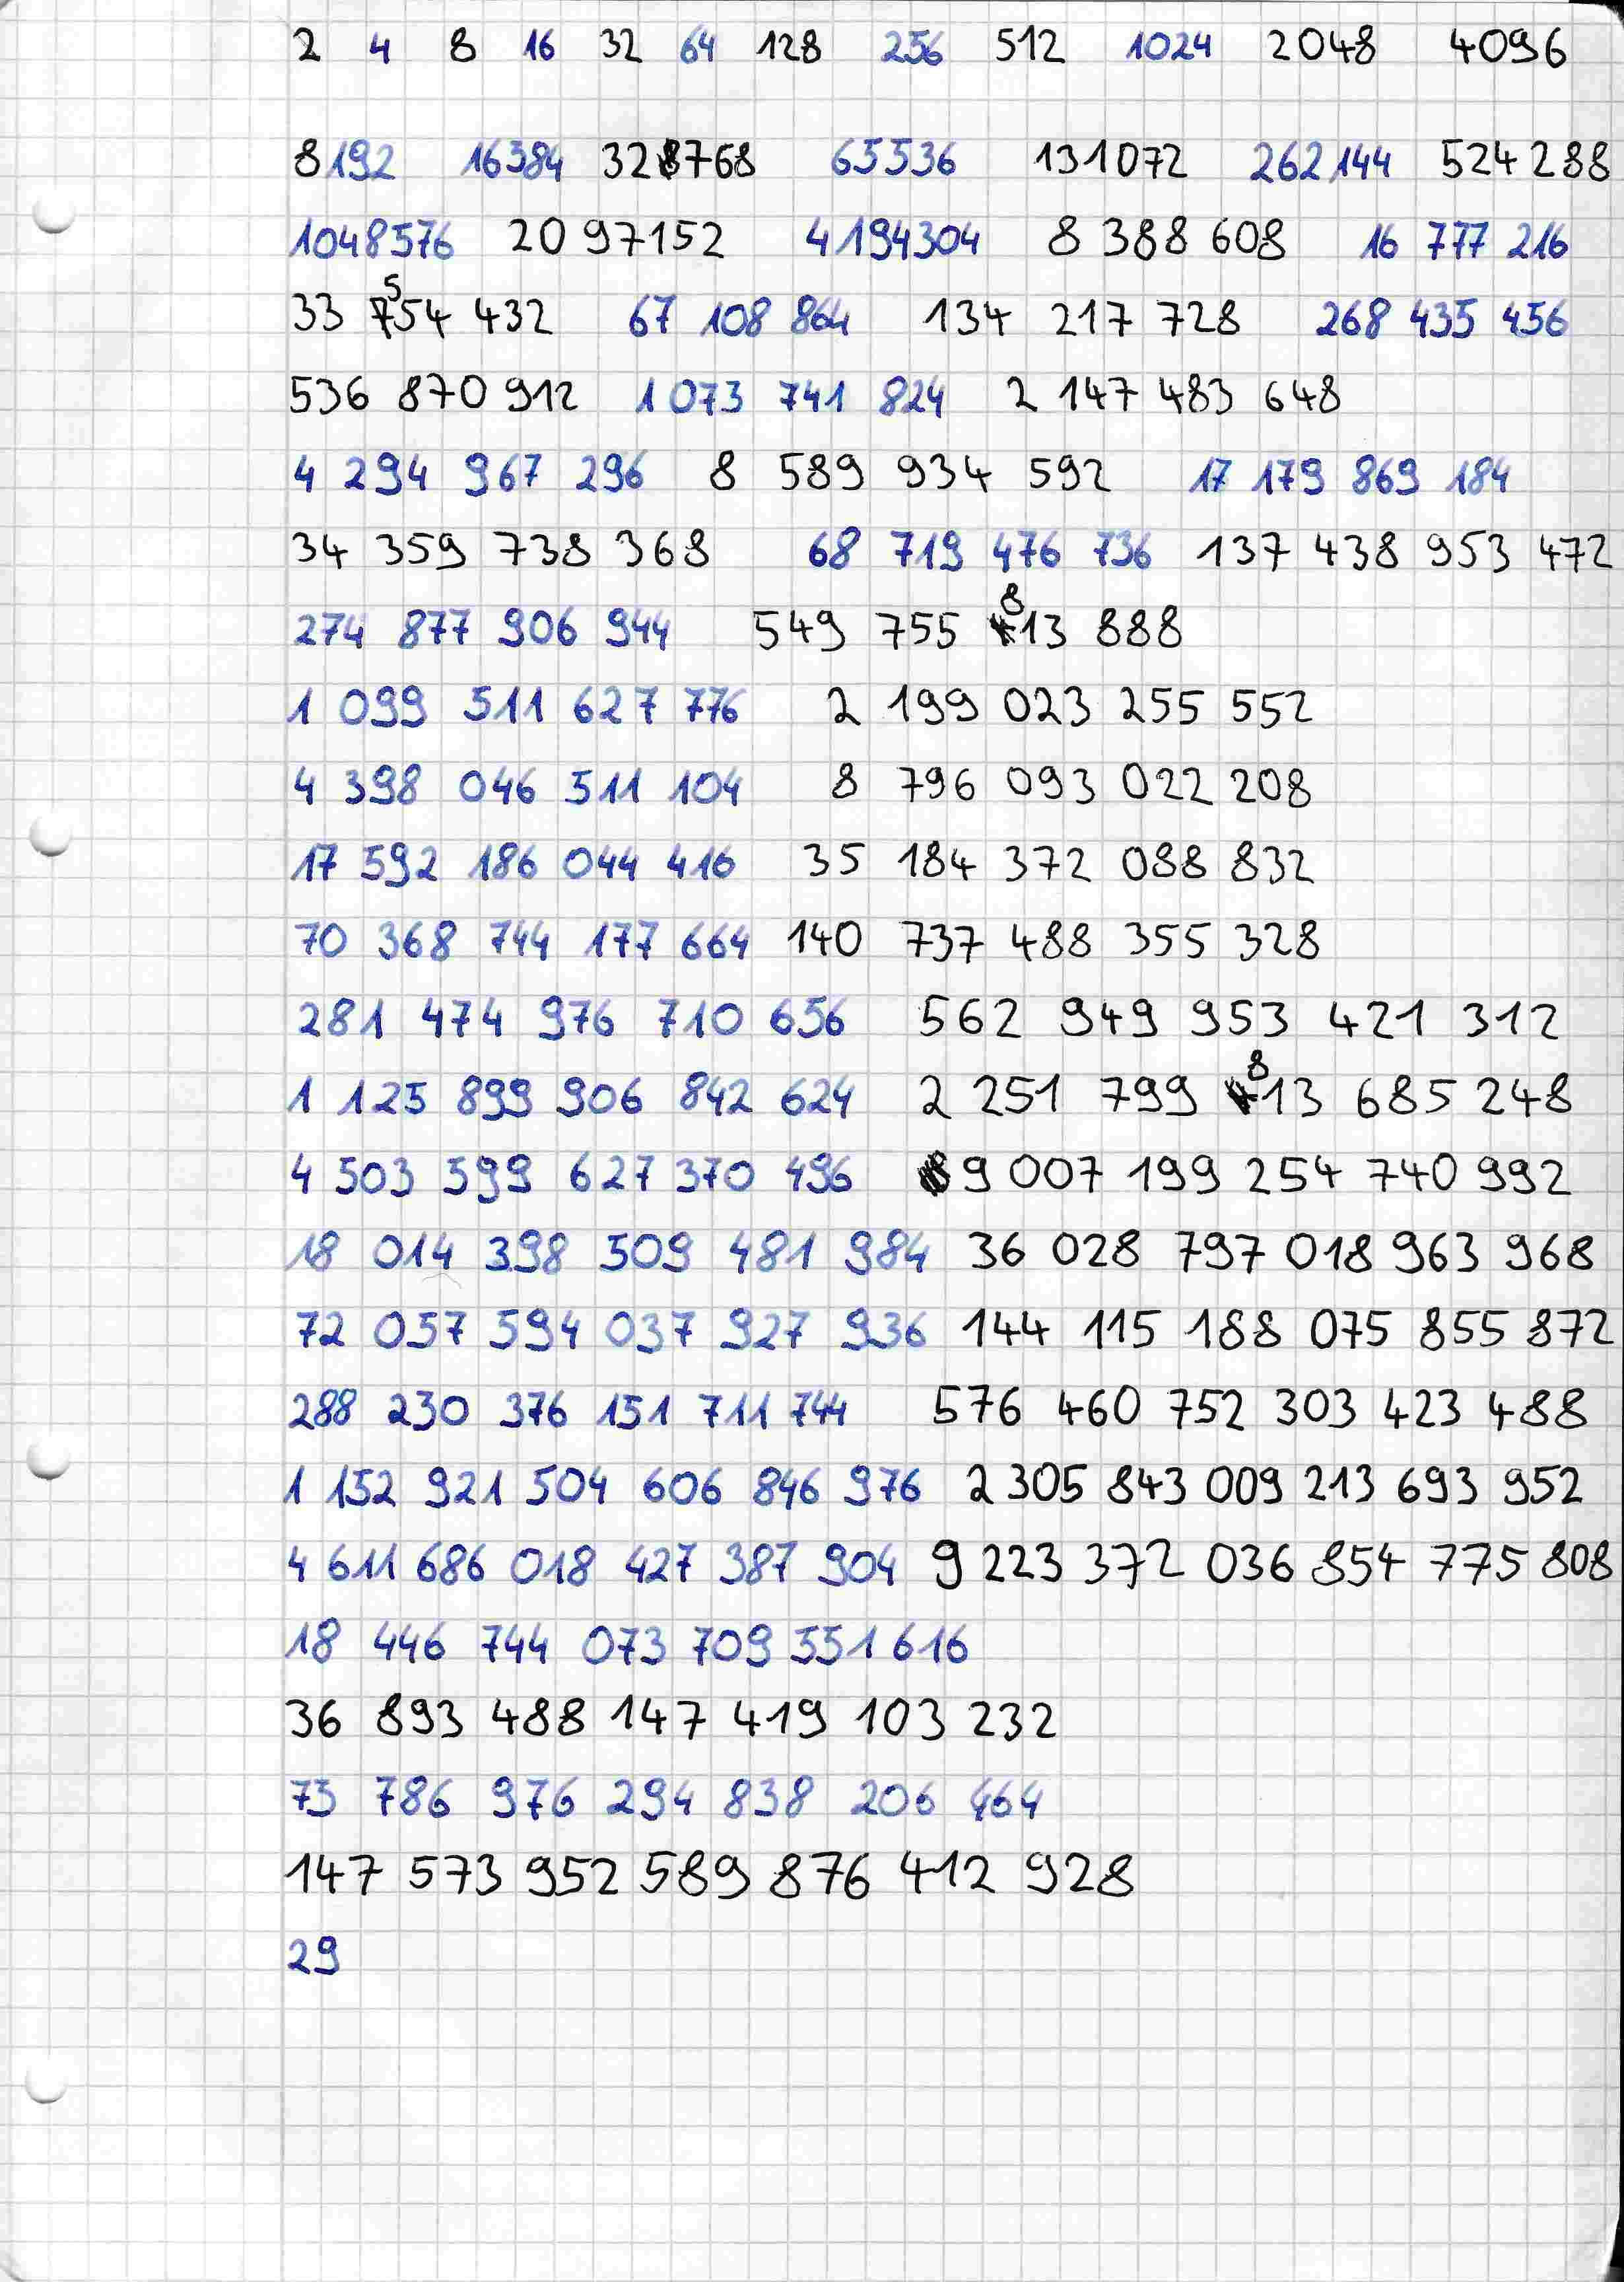 2 4 8 16 32 64 128 256 512 1024 2048 4096
8192 16384 32768 65536 131072 262144 524 288
1048576 2097152 4194304 8 388 608 16 777 216
33 554 432 67 108 864 134 217 728 268 435 456
536 870 912 1 073 741 824 2 147 483 648
4 294 967 296 8 589 934 592 17 179 869 184
34 359 738 368 68 719 476 736 137 438 953 472
274 877 906 944 549 755 813 888
1 099 511 627 776 2 199 023 255 552
4 398 046 511 104 8 796 093 022 208
17 592 186 044 416 35 184 372 088 832
70 368 744 177 664 140 737 488 355 328
281 474 976 710 656 562 949 953 421 312
1 125 899 906 842 624 2 251 799 813 685 248
4 503 599 627 370 496 9 007 199 254 740 992
18 014 398 509 481 984 36 028 797 018 963 968
72 057 594 037 927 936 144 115 188 075 855 872
288 230 376 151 711 744 576 460 752 303 423 488
1 152 921 504 606 846 976 2 305 843 009 213 693 952
4 611 686 018 427 387 904 9 223 372 036 854 775 808
18 446 744 073 709 551 616
36 893 488 147 419 103 232
73 786 976 294 838 206 464
147 573 952 589 876 412 928
29